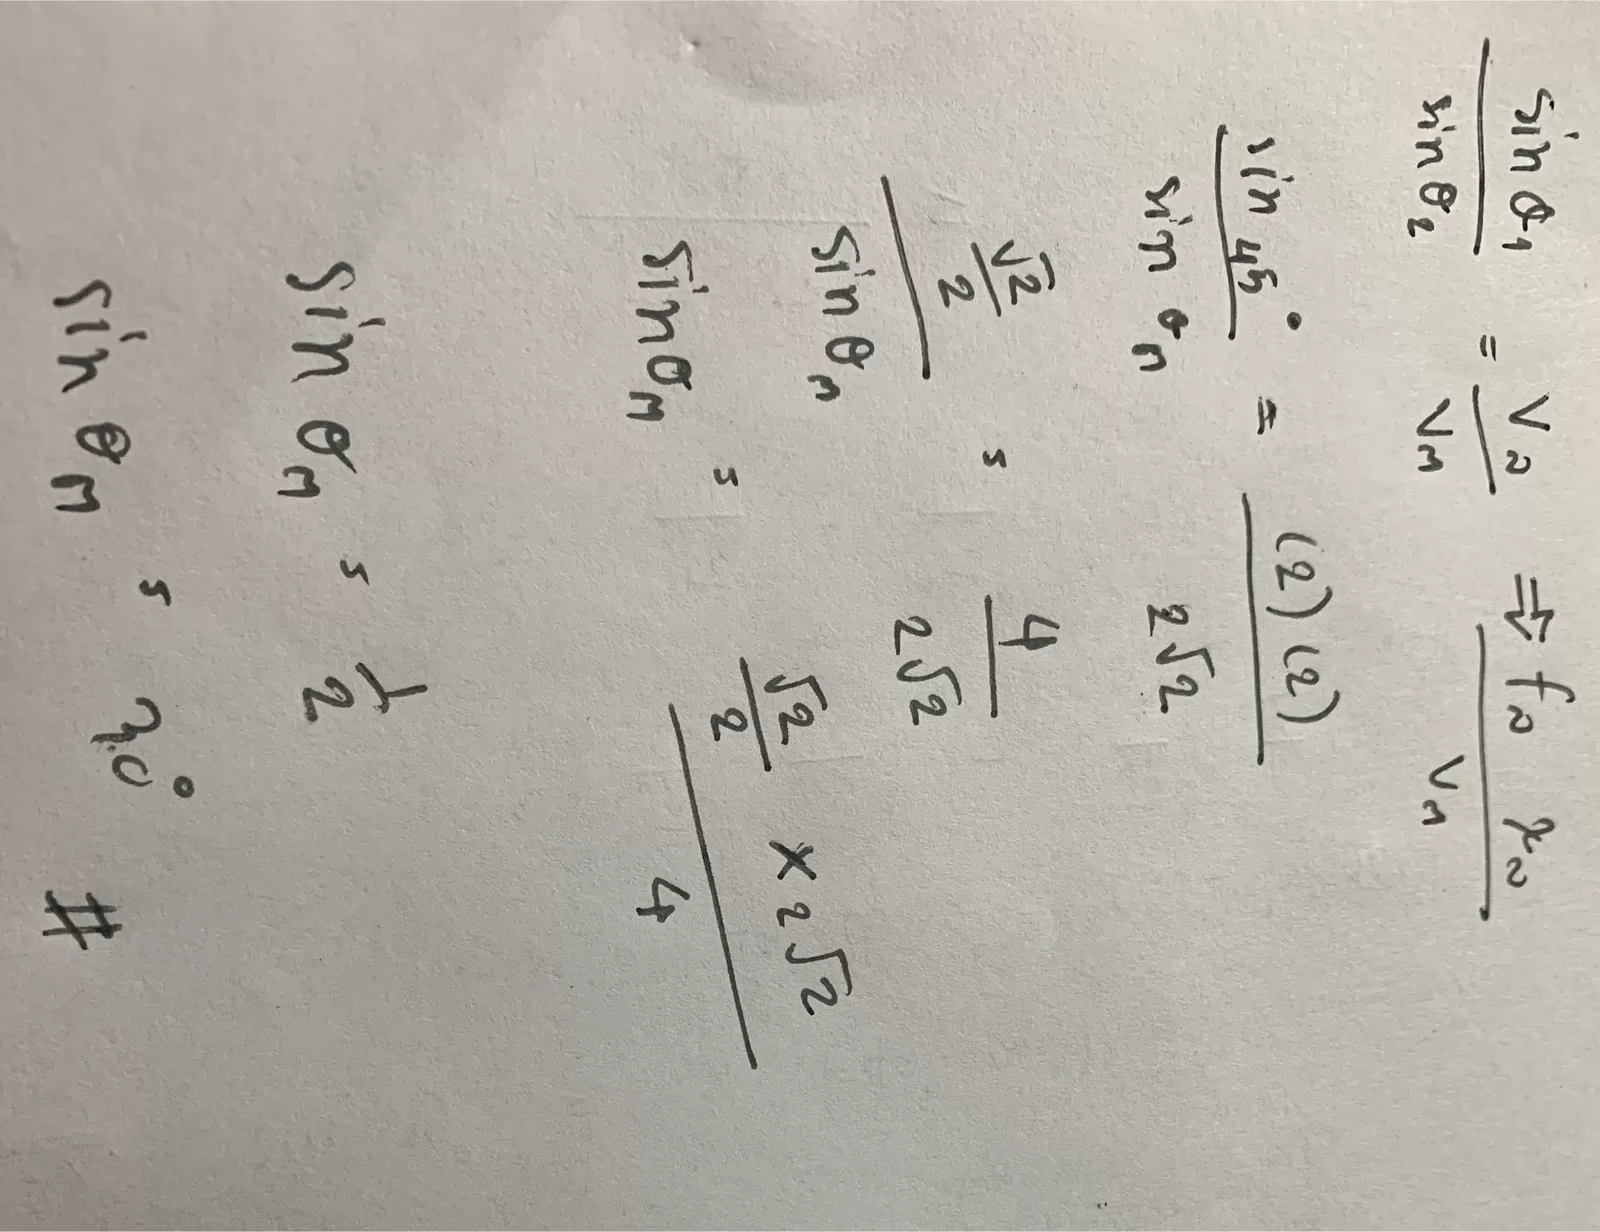 sin θ₁ / sin θ₂ = Vₐ / Vₙ ⇒ fₐ λₐ / Vₙ
sin 45° / sin θₙ = (2)(2) / 2√2
√2/2 / sin θₙ = 4 / 2√2
sin θₙ = √2/2 × 2√2 / 4
sin θₙ = 1/2
sin θₙ = 30° #